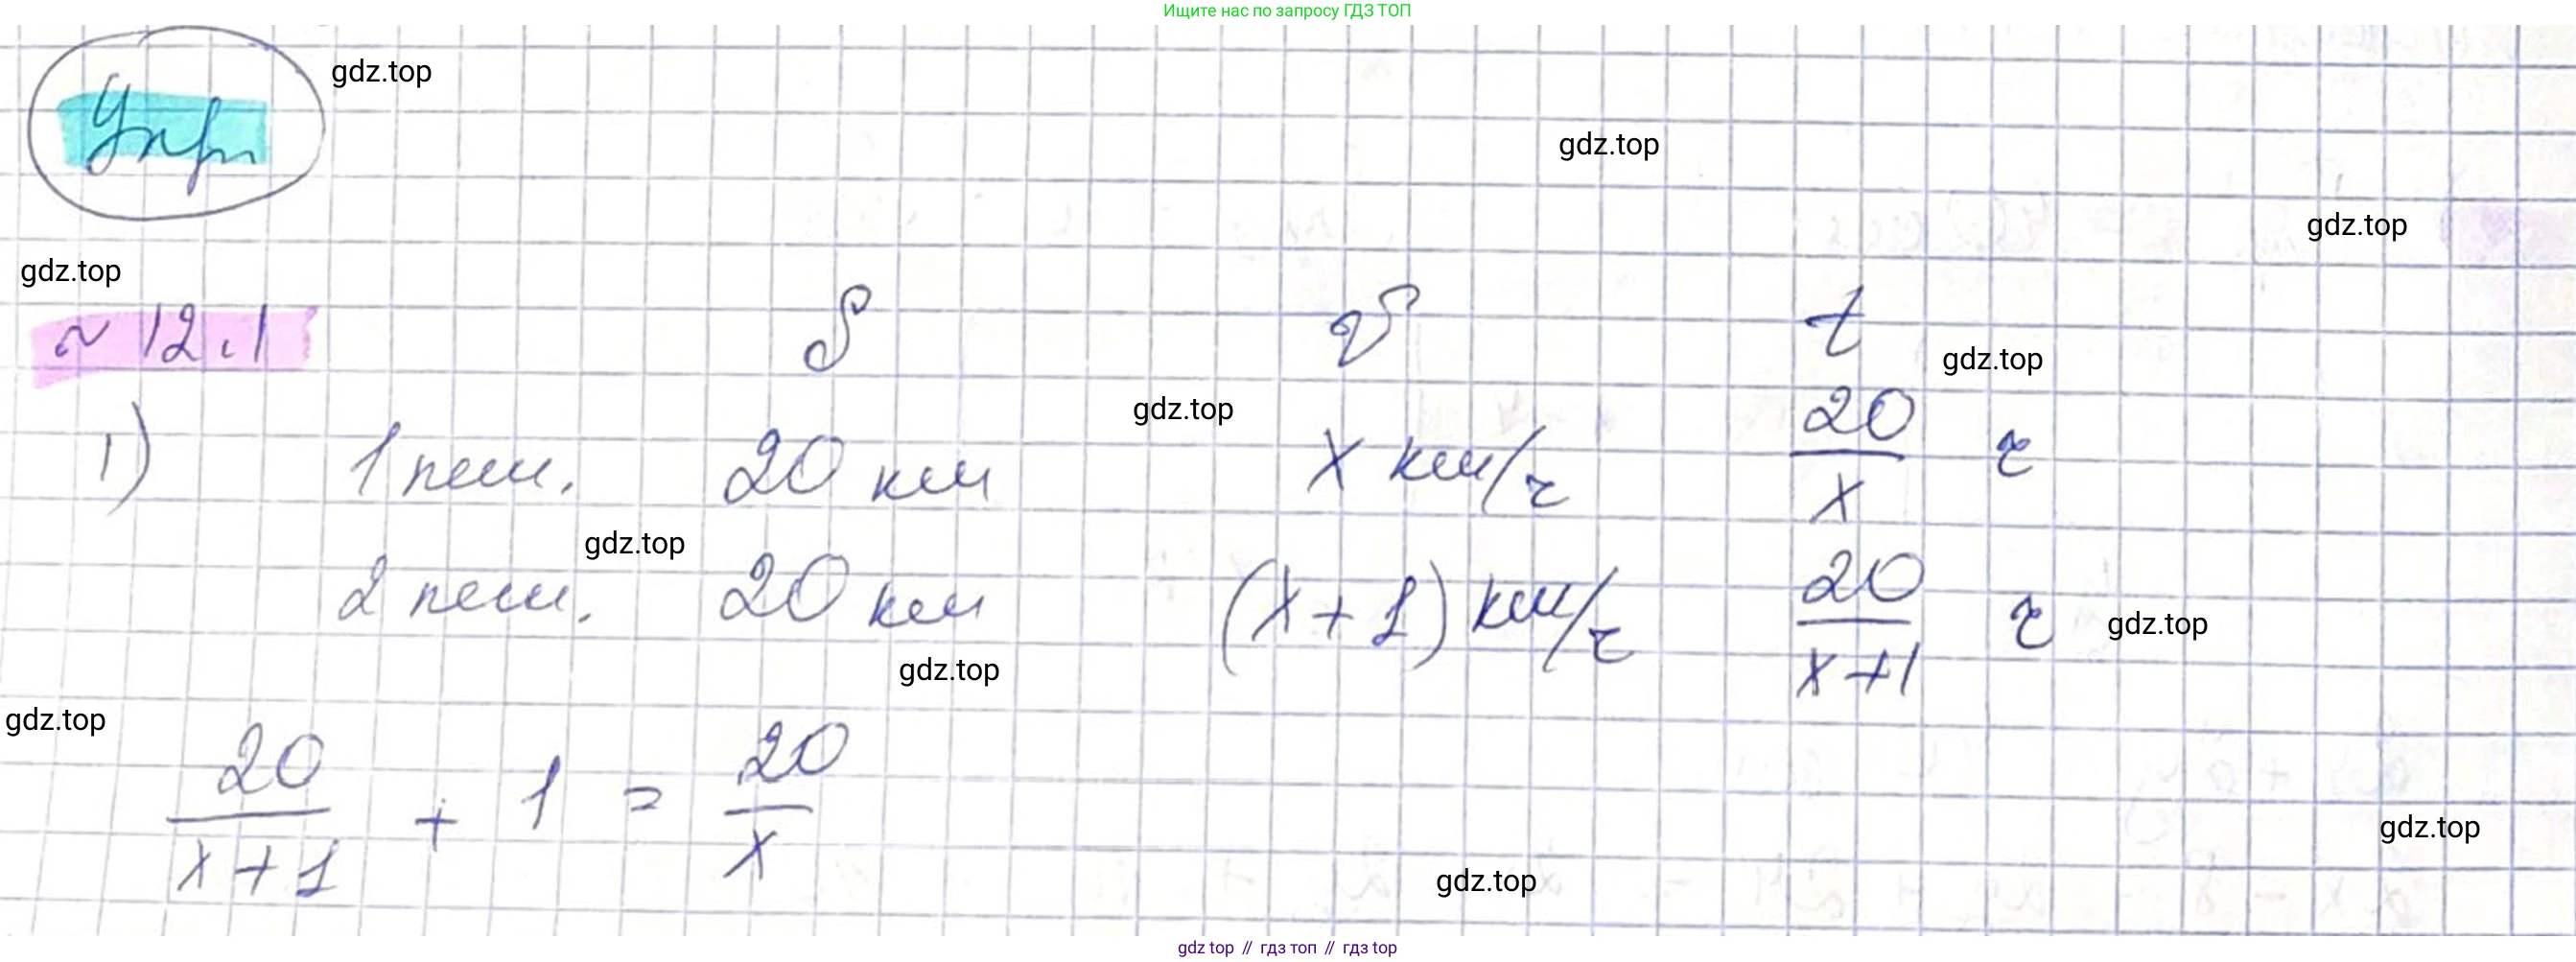 Ищите нас по запросу ГДЗ ТОП
Упр
gdz.top
gdz.top
gdz.top
gdz.top
№ 12.1 S v t
gdz.top
gdz.top
1) 1 пеш. 20 км x км/ч 20/x ч
gdz.top
2 пеш. 20 км (x+1) км/ч 20/x+1 ч
gdz.top
gdz.top
gdz.top
20/x+1 + 1 = 20/x
gdz.top
gdz.top
gdz.top // гдз топ // гдз top